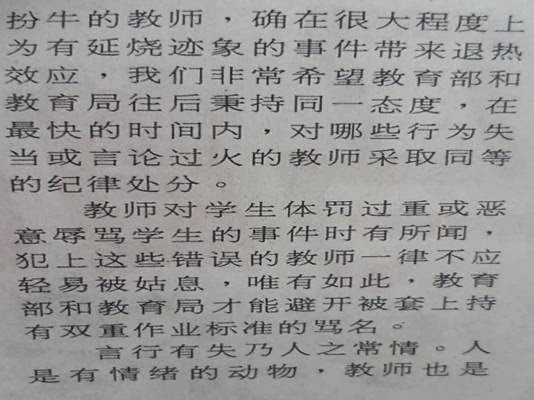 扮牛的教师，确在很大程度上
为有延烧迹象的事件带来退热
效应，我们非常希望教育部和
教育局往后秉持同一态度，在
最快的时间内，对哪些行为失
当或言论过火的教师采取同等
的纪律处分。
教师对学生体罚过重或恶
意辱骂学生的事件时有所闻，
犯上这些错误的教师一律不应
轻易被姑息，唯有如此，教育
部和教育局才能避开被套上持
有双重作业标准的骂名。
言行有失乃人之常情。人
是有情绪的动物，教师也是